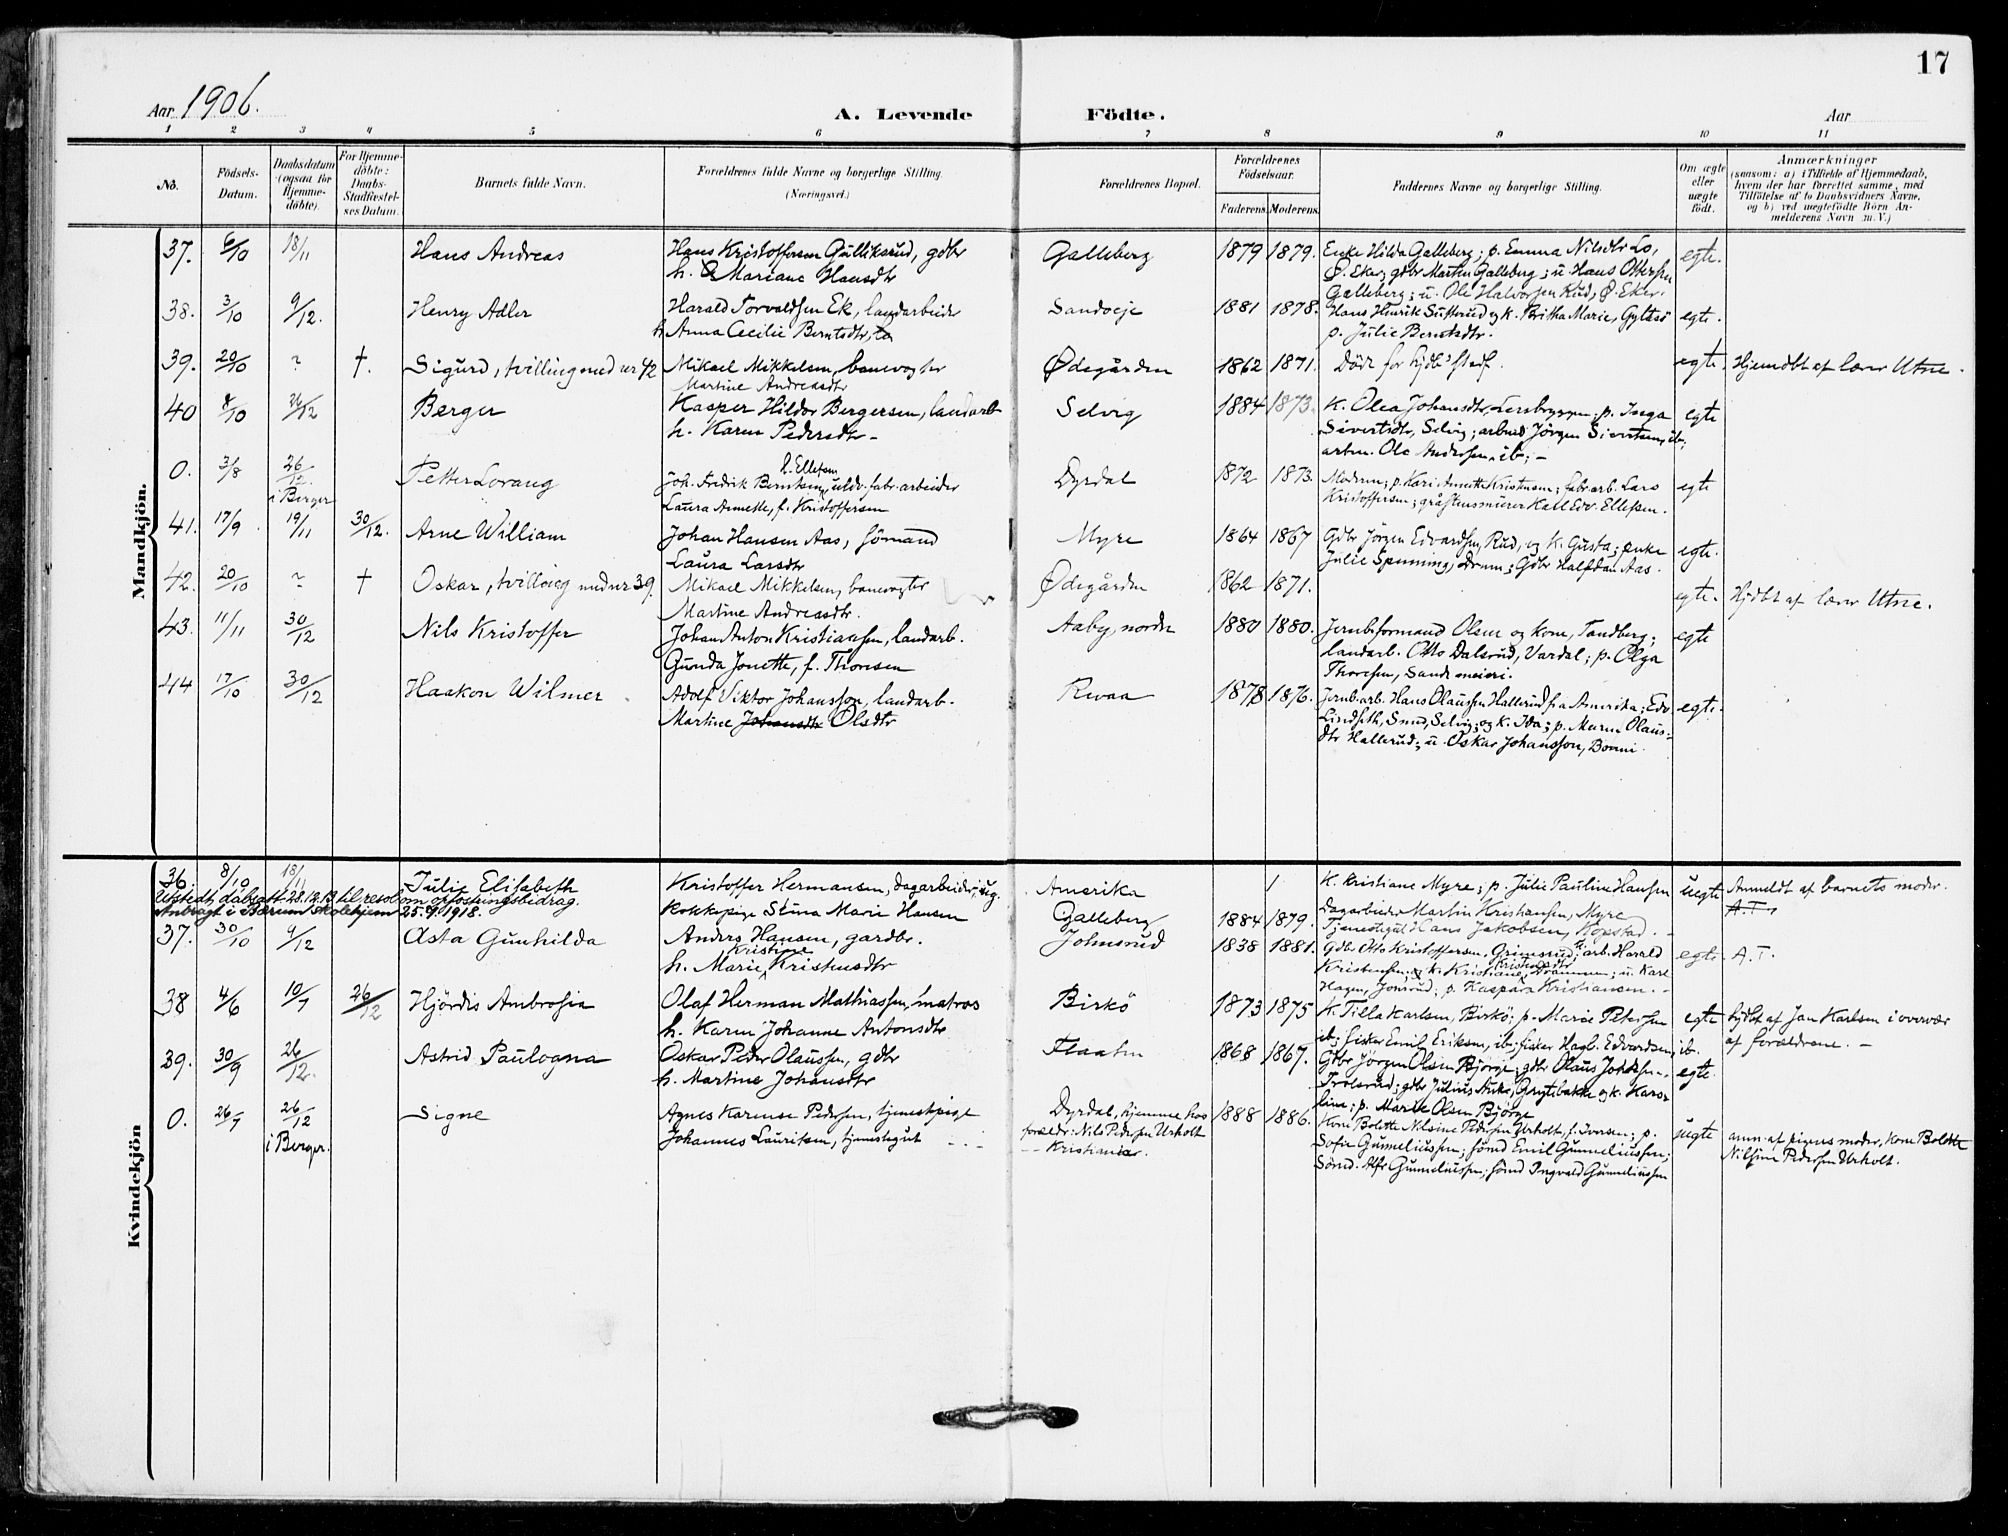 17
Aar 1906.
A. Levende Födte.
Aar
1 2 3 4 5 6 7 8 9 10 11
No.
Födsels-Datum.
Daabsdatum (ogsaa for Hjemme-döbte).
For Hjemme-döbte: Daabs-Stadfæstel-ses Datum.
Barnets fulde Navn.
Forældrenes fulde Navne og borgerlige Stilling.
(Næringsvei.)
Forældrenes Bopæl.
Forældrenes Födselsaar.
Faderens. Moderens.
Faddernes Navne og borgerlige Stilling.
Om ægte eller uægte født.
Anmærkninger
(saasom: a) i Tilfælde af Hjemmedaab,
hvem der har forrettet samme, med
Tilföielse af to Daabsvidners Navne,
og b) ved uægtefödte Börn An-
melderens Navn m. V.)
Mandkjön.
37. 6/10 18/11 Hans Andreas Hans Kristoffersen Gulliksrud, gdbr Galleberg 1879 1879. Enke Hilda Galleberg; p. Emma Nilsdtr Lo, egte.
h. Mariane Hansdtr Ø. Eker; gdbr Martin Galleberg; u. Hans Ottersen
Galleberg; u. Ole Halvorsen Rud, Ø. Eker.
38. 3/10 9/12. Henry Adler Harald Torvaldsen Ek, landarbeider Sandveje 1881 1878. Hans Henrik Sutterud og k. Britha Marie, egte.
h Anna Cecilie Berntsdtr p. Julie Berntsdtr.
39. 20/10 ? †. Sigurd, tvilling med nr 42 Mikael Mikkelsen, banevogter Ødegården 1862 1871. Döde for hjdb' stadf. egte. Hjemdbt af lærer Utne.
Martine Andreasdtr
40 8/10 26/12 Berger Kasper Hildor Bergersen, landarb Selvig 1884 1873. K. Olea Johansdtr, Lersbryggen; p. Inga egte
h. Karen Pedersdtr - Sivertsdtr, Selvig; arbmd Jörgen Sivertsen, ib;
arbm. Ole Andersen, ib; -
0. 3/8 26/12 i Berger Petter Lorang Joh. Fredrik Berntsen, f. Ellefsen uldv. fabr. arbeider Dyrdal 1872 1873. Moderen; p. Kari Annette Kristensen; fabr. arb. Lars egte
Laura Annette, f. Kristoffersen Kristoffersen; gråstensmurer Karl Edv. Ellefsen.
41. 17/9 19/11 30/12. Arne William Johan Hansen Aas, sömand Myre 1864 1867 Gdbr Jörgen Edvardsen, Rud, og K. Gusta; enke egte.
Laura Larsdtr Julie Spenning, Dram; Gdbr Halfdan Aas.
42. 20/10 ? † Oskar, tvilling med nr 39. Mikael Mikkelsen, banevogter Ødegården 1862 1871. egte. Hjdbt af lærer Utne.
Martine Andreasdtr.
43. 11/11 30/12 Nils Kristoffer Johan Anton Kristiansen, landarb. Aaby, nordre 1880 1880. Jernbformand Olsen og kone, Tandberg; egte
Gunda Jonette, f. Thorsen landarb. Otto Dalsrud, Vardal; p. Olga
Thoresen, Sande meieri.
44 17/10 30/12 Haakon Wilmer Adolf Viktor Johansson, landarb. Revaa 1878 1876. Jernb. arb. Hans Olaussen Hallerud fra Amerika; Edv. egte.
Martine Johansdtr Olsdtr Lindseth, Smed, Selvig; og k. Ida; p. Maren Olaus-
dtr Hallerud; u. Oskar Johansson, Bonni.
Kvindekjön
36. 8/10 18/11 Julie Elisabeth Kristoffer Hermansen, dagarbeider, ug. Amerika 1 K. Kristiane Myre; p. Julie Pauline Hansen uegte Anmeldt af barnets moder.
Utstedt dåbsatt. 28.12.13 til resol. om opfostringsbidrag.
Anbragt i Bærum skolehjem 25.9.1918.
Kokkepige Stina Marie Hansen Galleberg 1884 1879. Dagarbeider Martin Kristiansen, Myre A.T.
Tjenestegut Hans Jakobsen, Kopstad.
37. 30/10 9/12 Asta Gunhilda Anders Hansen, gardbr. Johnsrud 1838 1881. Gdbr Otto Kristoffersen, Grimsrud; arb. Harald egte. A.T.
h. Marie Kristine Kristensdtr Kristensen, og k. Kristiane Kristensdtr, Drammen; u. Karl
Hagen, Jonsrud; p. Kaspara Kristiansen.
38 4/6 10/7 26/12 Hjördis Ambrosia Olaf Herman Mathiassen, matros Birkö 1873 1875 K. Tilla Karlsen, Birkö; p. Marie Petersen egte hjdbt af Jan Karlsen i overvær
h. Karen Johanne Antonsdtr ib; fisker Emil Eriksen, ib; fisker Hagb. Edvardsen, ib. af forældrene. -
39. 30/9 26/12. Astrid Paulogna Oskar Peder Olaussen, gdbr Flaaten 1868 1867. Gdbr Jörgen Olsen Bjørge; gdbr Olaus Johansen egte.
h. Martine Johansdtr Trolsrud; gdbr Julius Auke, Grytebakke og k. Karo-
line; p. Marie Olsen Bjørge
0. 26/7 26/12 i Berger. Signe Agnes Karense Pedersen, tjenestepige Dyrdal, hjemme hos 1888 1886. Kone Bolette Nilsine Pedersen Urholt, f. Iversen; p. uegte anm. af pigens moder, kone Bolette
Johannes Lauritsen, tjenestegut forældr: Nils Pedersen Urholt Sofie Gunneliussen; sömd Emil Gunneliussen; Nilsine Pedersen Urholt.
Kristiania. Sömd. Alfr Gunneliussen; sömd Ingvald Gunneliussen